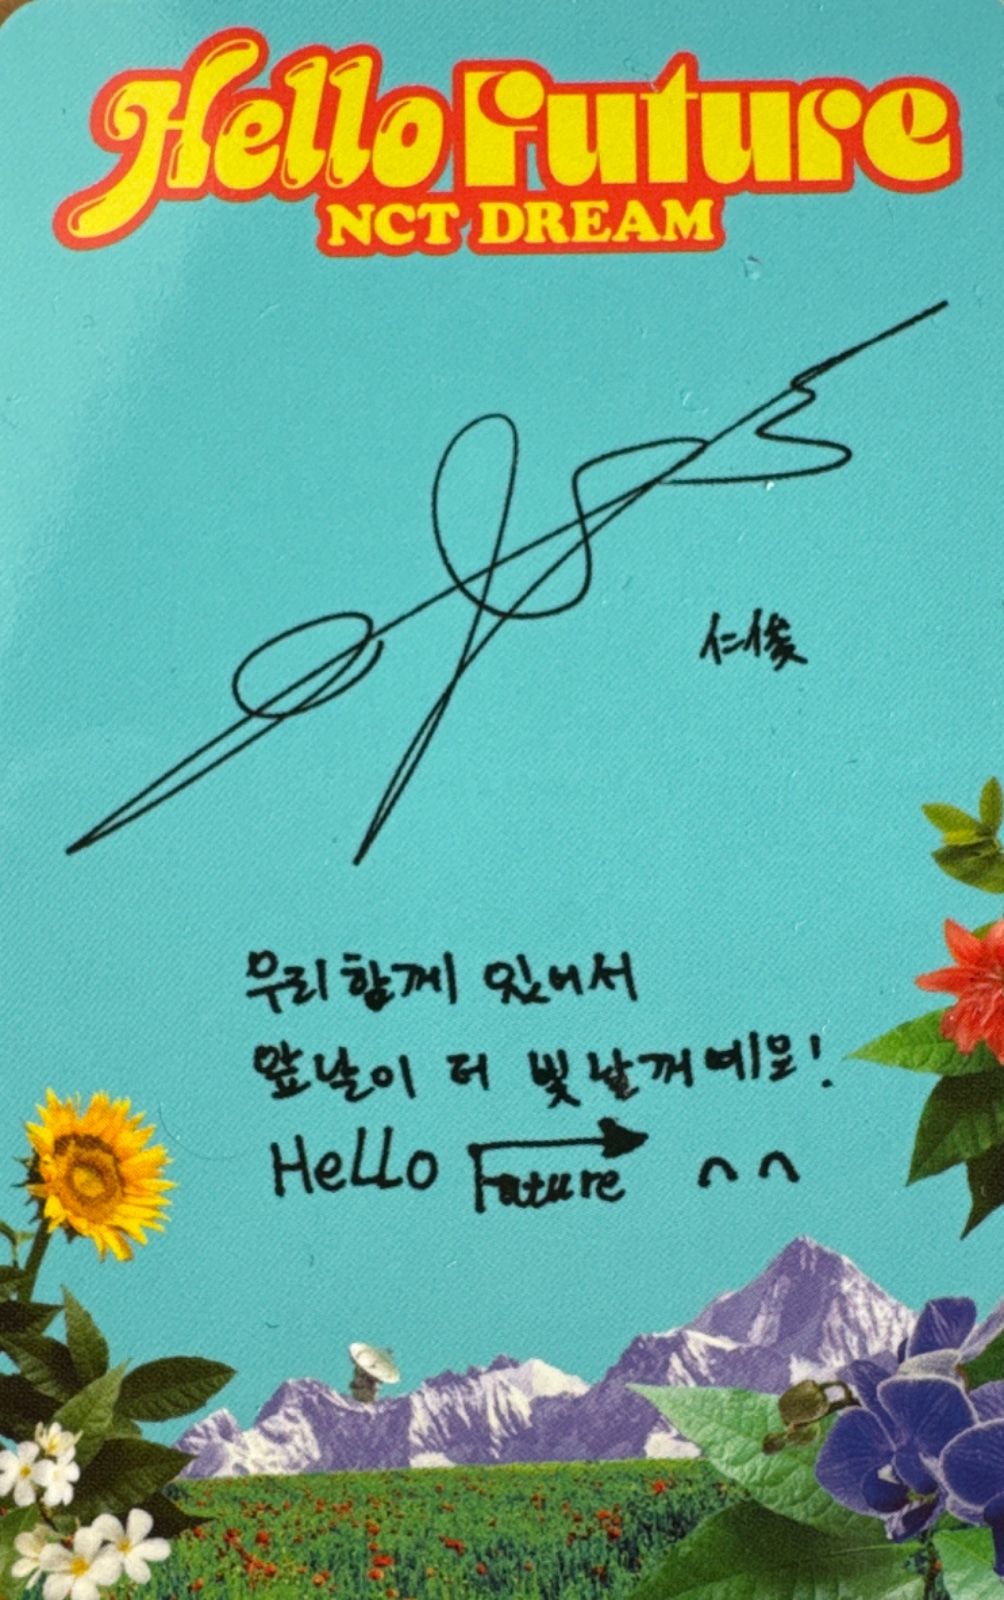 Hello Future
NCT DREAM
仁俊
우리 함께 있어서
앞날이 더 빛날꺼예요!
Hello Future ^^